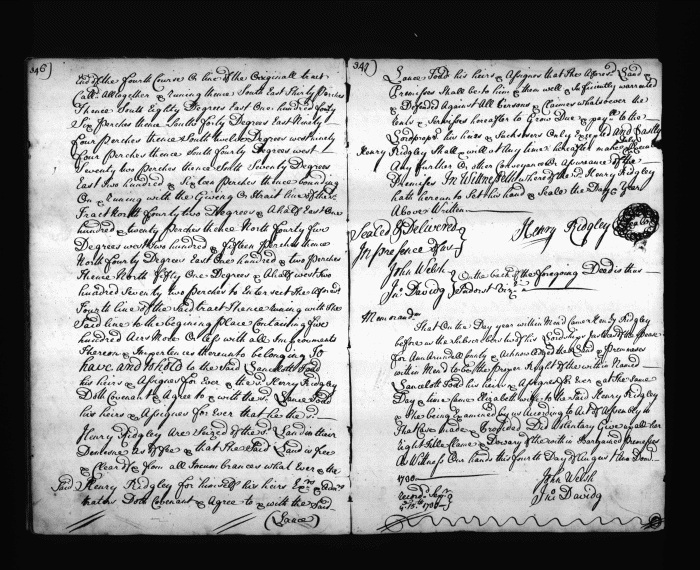 346)
End of the fourth Course or line of the Originall tract
Calld Alltogether & runing thence South East thirty Perches
Thence South Eighty Degrees East One hundred forty
Six Perches thence South forty Degrees East Ninety
four Perches thence South twelve Degrees west ninety
four Perches thence South forty Degrees west
Seventy two perches thence South Seventy Degrees
East Two hundred & Sixteen Perches thence bounding
On & runing with the Given On Strait line of the
Tract North fourty two Degrees & a half East One
hundred & twenty Perches thence North fourty five
Degrees west two hundred & fifteen Perches thence
North fourty Degrees East One hundred & two Perches
Thence North fifty One Degrees & A half west two
hundred Seventy two perches to Enter sect the Aforsd
Fourth line of the Said tract Thence runing with the
Said line to the begining place Containing five
hundred Acres More Or less with all Improvments
Thereon & Impertences thereunto belonging To
have and to hold to the Said Lancelott Todd
his heirs & Assignes for Ever the sd. Henry Ridgley
Doth Covenant & Agree to & with the sd. Lance Todd
his heirs & Assignes for Ever that he the sd
Henry Ridgley Are Seized of the sd. Land in their
Demesne as of fee & that the Said Land is free
& Clear of & from all Incumbrances what Ever & the
Said Henry Ridgley for himself his heirs Exrs & Admrs
Doth Covenant & Agree to & with the Said
(Lance)
347)
Lance Todd his heirs & Assignes that the Aforesd Land &
Premisses Shall be to him & them well & sufficiently warranted
& Defended Against All Persons & Claimes whatsoever the
Rents & Services hereafter to Grow Due & payll to the
Lordshipp his heirs & Suckssors Only Excepted And Lastly
Henry Ridgley Shall & will at Any time hereafter make
Any further Or Other Conveyance Or Asurance of the
Premisses In Wittness whereof the sd. Henry Ridgley
hath hereunto Set his hand & Seale the Day & Year
Above Written
Sealed & Delivered
In presence of us
Henry Ridgley
John Welsh
Jno Davidg
On the back of the foregoing Deed is thus
Indorst Vizt
Memorandm
That On the Day year within Mend Came Henry Ridgley
before us the Subscribers two of his Lordships Justices of the peace
for Ann Arundell County & Acknowledged the Land & Premisses
within Mend to be the Proper Right of the within Named
Lancelott Todd his heirs & Assignes for Ever & at the Same
Day & time Came Elizabeth wife to the Said Henry Ridgley
& She being Examined by us According to Act of Assembly in
That Case Made & Provided Did Voluntary Give up all her
right title Clame & Dowary of the within Bargained Premisses
As Wittness Our hands this fourth Day of August Anno Dom
1708
John Welsh
Jno Davidg
Recordd Sepr
1708